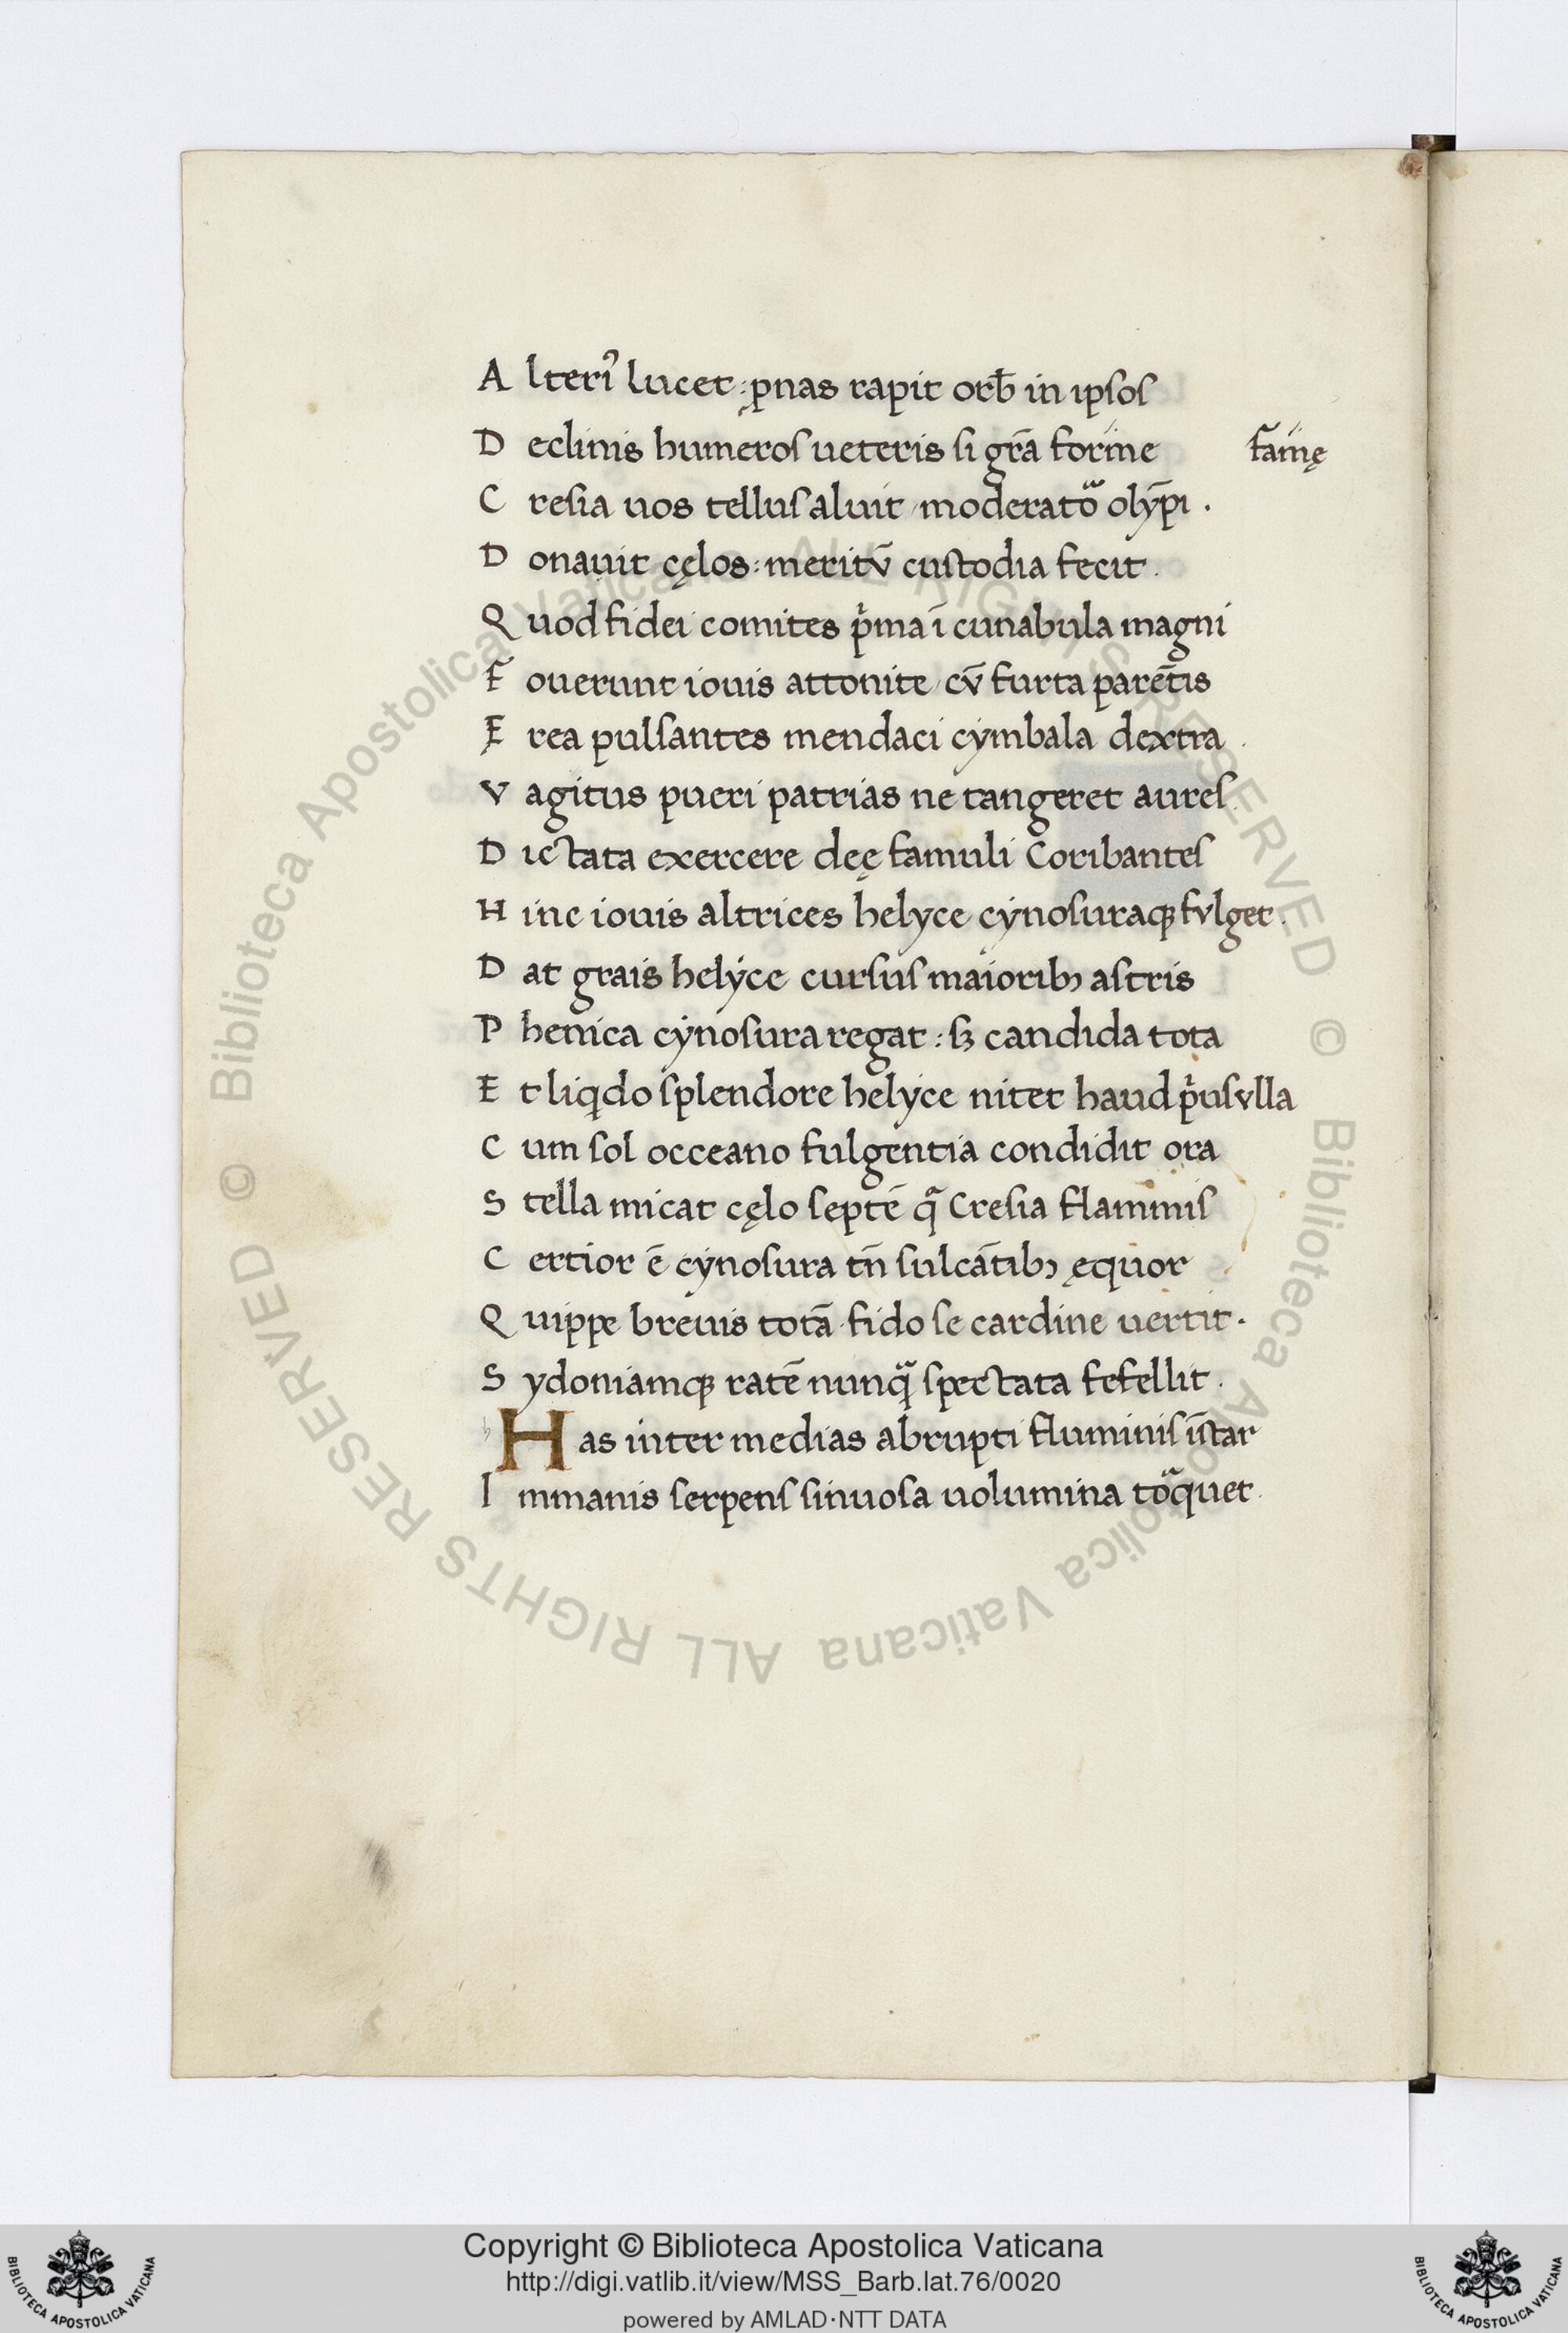 A lteri᾽ lucet : p̱nas rapit orb̄ in ipsos
D eclinis humeros ueteris si gr̄a forme famę
C resia uos tellus aluit / moderatō olȳpi .
D onauit cęlos : meritū custodia fecit .
Q uod fidei comites p̓ma ī cunabula magni
F ouerunt iouis attonite / cū furta parētis
Ę rea pulsantes mendaci cymbala dextra .
V agitus pueri patrias ne tangeret aures .
D ictata exercere deę famuli Coribantes
H inc iouis altrices helyce cynosuraqꝫ fulget .
D at grais helyce cursus maioribꝫ astris
P henica cynosura regat : sꝫ candida tota
E t liqdo splendore helyce nitet haud p̓us ulla
C um sol occeano fulgentia condidit ora
S tella micat cęlo septē q̄ Cresia flammis
C ertior ē cynosura tn̄ sulcātibꝫ ęquor
Q uippe breuis totā fido se cardine uertit .
S ydoniamqꝫ ratē nunq̄ spectata fefellit .
h Has inter medias abrupti fluminis īstar
I mmanis serpens sinuosa uolumina tōquet .
© Biblioteca Apostolica Vaticana ALL RIGHTS RESERVED © Biblioteca Apostolica Vaticana ALL RIGHTS RESERVED
Copyright © Biblioteca Apostolica Vaticana
http://digi.vatlib.it/view/MSS_Barb.lat.76/0020
powered by AMLAD·NTT DATA
BIBLIOTECA APOSTOLICA VATICANA
BIBLIOTECA APOSTOLICA VATICANA